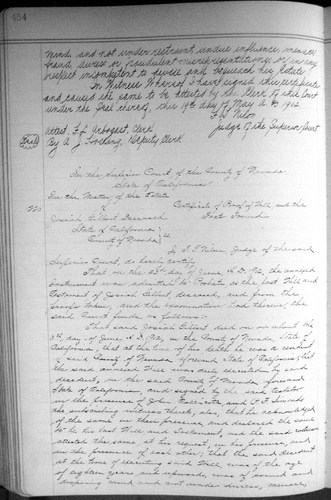 454
mind, and not under restraint, undue influence, menace,
fraud, duress or fraudulent misrepresentations, or in any
respect incompetent to devise and bequeath his Estate.
In Witness Whereof, I have signed this certificate
and caused the same to be attested by the Clerk of said Court
under the Seal thereof, this 19th day of May A. D. 1902
F. T. Nilon
Judge of the Superior Court
Attest. F. L. Arbogast, Clerk
By A. J. Hosking, Deputy Clerk
Seal
In the Superior Court of the County of Nevada
State of California
In the Matter of the Estate
of
Josiah Gilbert Deceased
Certificate of Proof of Will and the
Facts Found
State of California
County of Nevada } ss
I, F. T. Nilon, Judge of the said
Superior Court, do hereby certify
That on the 23rd day of June, A. D. 1902, the annexed
instrument was admitted to Probate as the last Will and
Testament of Josiah Gilbert deceased, and from the
proofs taken, and the examination had therein, the
said Court finds as follows:
That said Josiah Gilbert died on or about the
day of June A. D. 1902, in the County of Nevada, State of
California, that at the time of his death he was a resident
of said County of Nevada, aforesaid, State of California; that
the said annexed Will was duly executed by said
decedent, in the said County of Nevada, aforesaid
State of California and signed by the said testator
in the presence of John and
the subscribing witnesses thereto; also, that he acknowledged
of the same in their presence, and declared the same
to be his last Will and Testament, and the said witnesses
attested the same at his request, in his presence, and
in the presence of each other; that the said decedent
at the time of executing said Will, was of the age
of eighteen years and upwards, was of sound and
disposing mind and not under duress, menace,